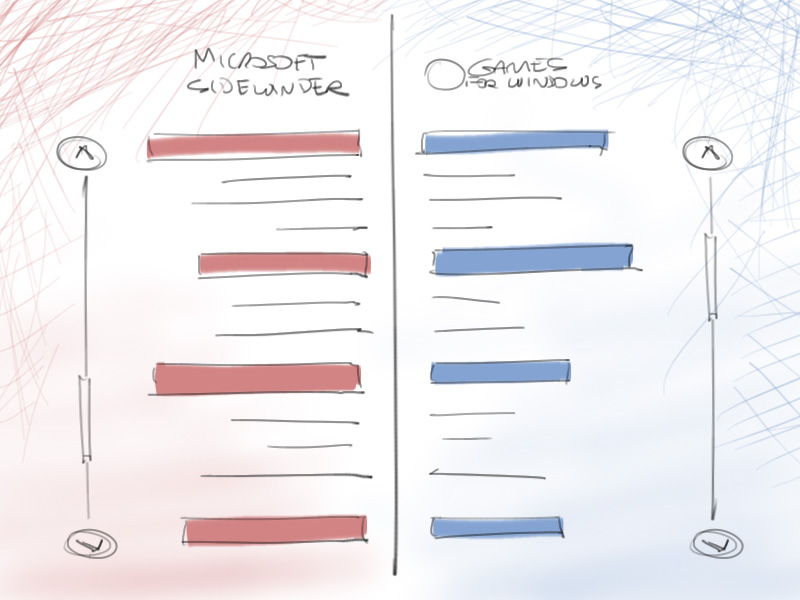 MICROSOFT
SIDEWINDER
GAMES
FOR WINDOWS